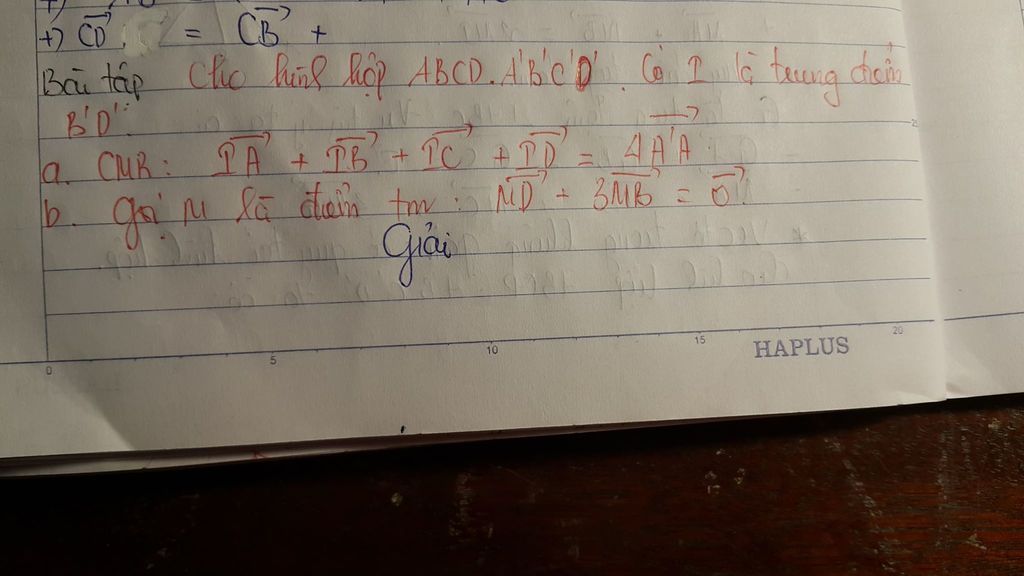 +) CD = CB +
Bài tập Cho hình hộp ABCD.A'B'C'D'. Có I là trung điểm
B'D'.
a. CMR: IA + IB + IC + ID = 4A'A.
b. Gọi M là điểm tm: MD + 3MB = 0.
Giải
0 5 10 15 20
HAPLUS
25